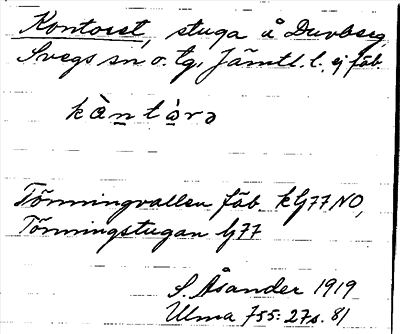 Kontoret, stuga å Duvberg,
Svegs sn o. tg, Jämtl. l. ej fäb.
kàntárə
Tönningvallen fäb. kG77NO,
Tönningstugan G77
S. Åsander 1919
Ulma 755: 27s. 81